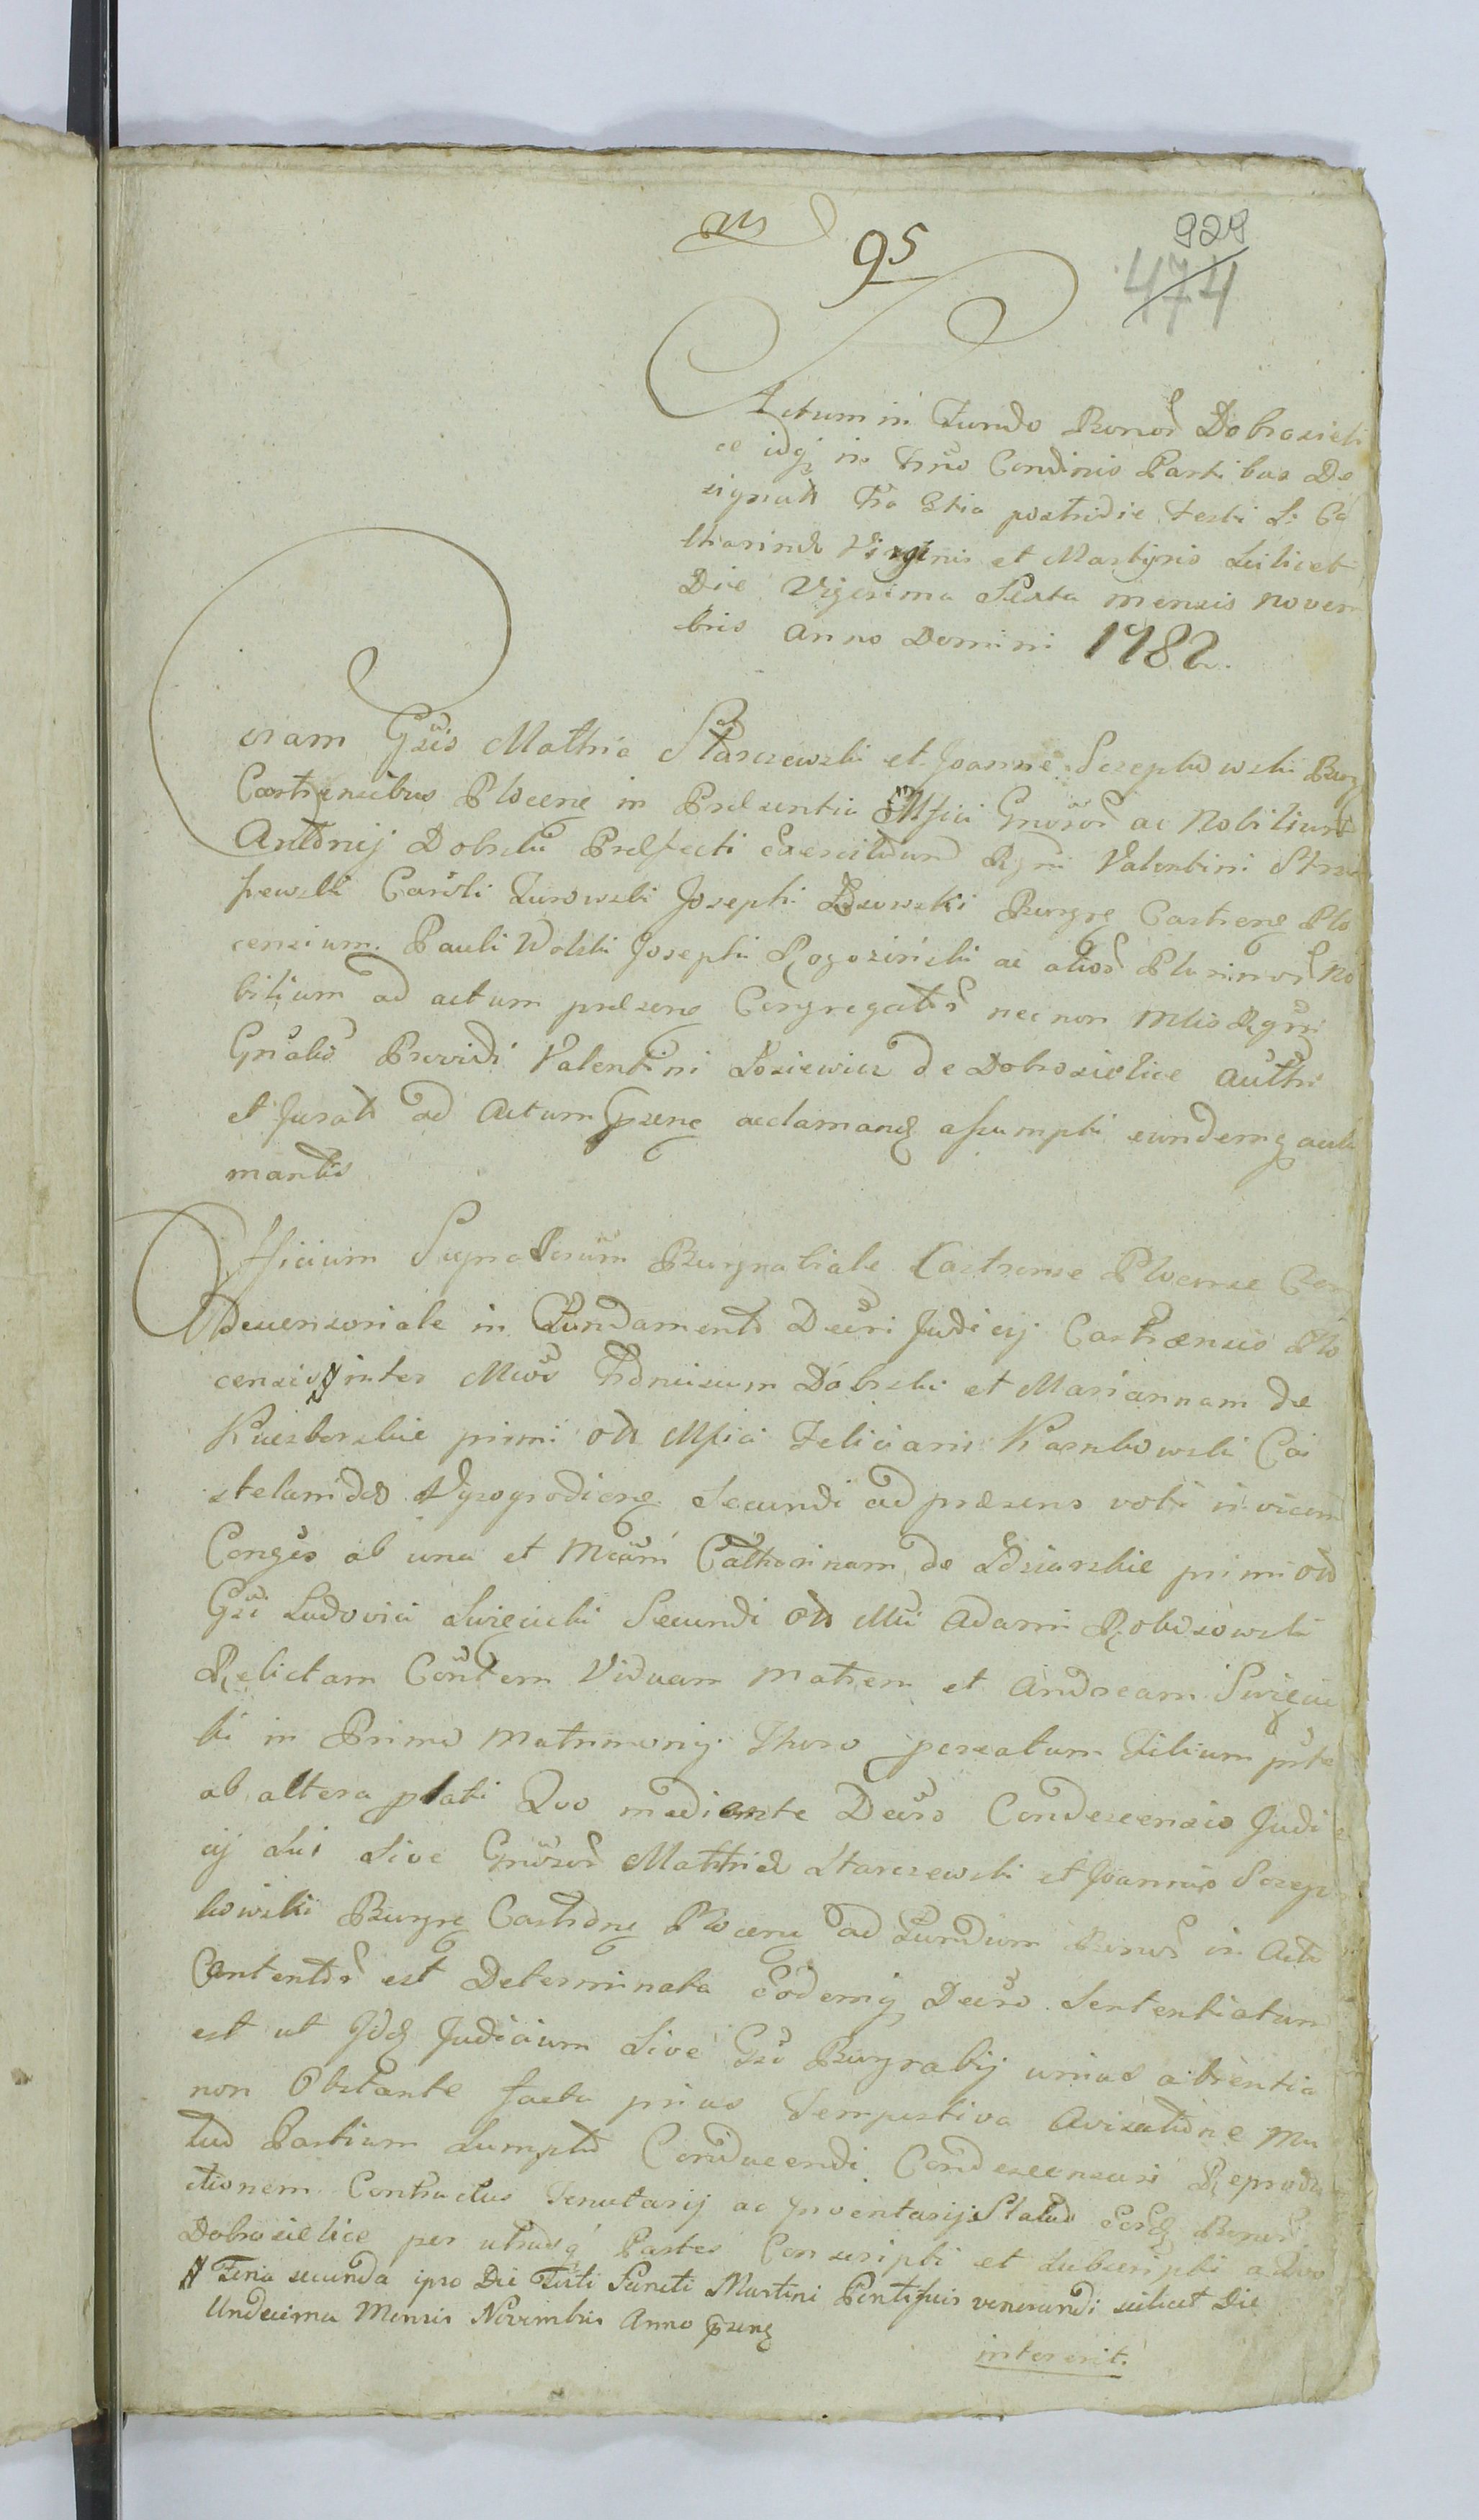 95
929
474
Actum in Fundo Bonor Dobrosieli
ce idq in Trno Condinis Partibus De
signato Fra 3tia postridie Festi S: Ca
tharinæ Virginis et Martyris scilicet
Die Vigesima Sexta mensis novem
bris anno Domini 1782.
oram Gsis Mathia Starczewski et Joanne Szczepkowski Burg
Castrensibus Plocens in Præsentia Mfici Gnosor ac Nobilium
Antonij Dobrski Præfecti Exercituum Rgni Valentini
Caroli Zurowski Josephi Burgr Castrens Plo
censium Pauli Wolski Josephi Rogozinski ac alior Plurimor No
bilium ad actum præsens Congregator nec non Mlis Rgni
Gnalis Providi Valentini Losiewicz de Dobrosielice Authi
et Jurati ad Actum Psens acclamand assumpti eundemq accla
mantis
fficium Burgrabiale Castrense Plocense Con
descensoriale in Fundamento Decri Judicij Castrensis Plo
censis inter Mcos Franciscum Dobrski et Mariannam de
primi oto Mfici Feliciani Karnkowski Ca
stelanidæ Vysogrodiens Secundi ad præsens voti invicem
Conges ab una et Mcam Catharinam de primi oto
Gsi Ludovici Swięcicki Secundi oto Mci Adami
Relictam Contem Viduam Matrem et Andream Swięcic
ki in Primo Matrimonij Thoro Filium
ab altera Quo mediante Decro Condescensio Judi
cij sui sive Gnosor Mathiæ Starczewski et Joannis Szczep
kowski Burgr Castrens Plocens ad Fundum Bonor in Actu
Contentor est Determinata Eodemq Decro Sententiatum
est ut Idq Judicium sive Gsi Burgrabij unius absentia
non Obstante facta prius Tempestiva Avisatione Mu
tuo Partium Sumptu Conducendi Condescensuri Reprodu
ctionem Contractus Tenutarij ac Status Bonor
Dobrosielice per utrasq Partes Conscripti et Subscripti a quo
Feria secunda ipso Die Festi Sancti Martini Pontificis venerandi scilicet Die
Undecima Mensis Novembris Anno Psens
intererit.